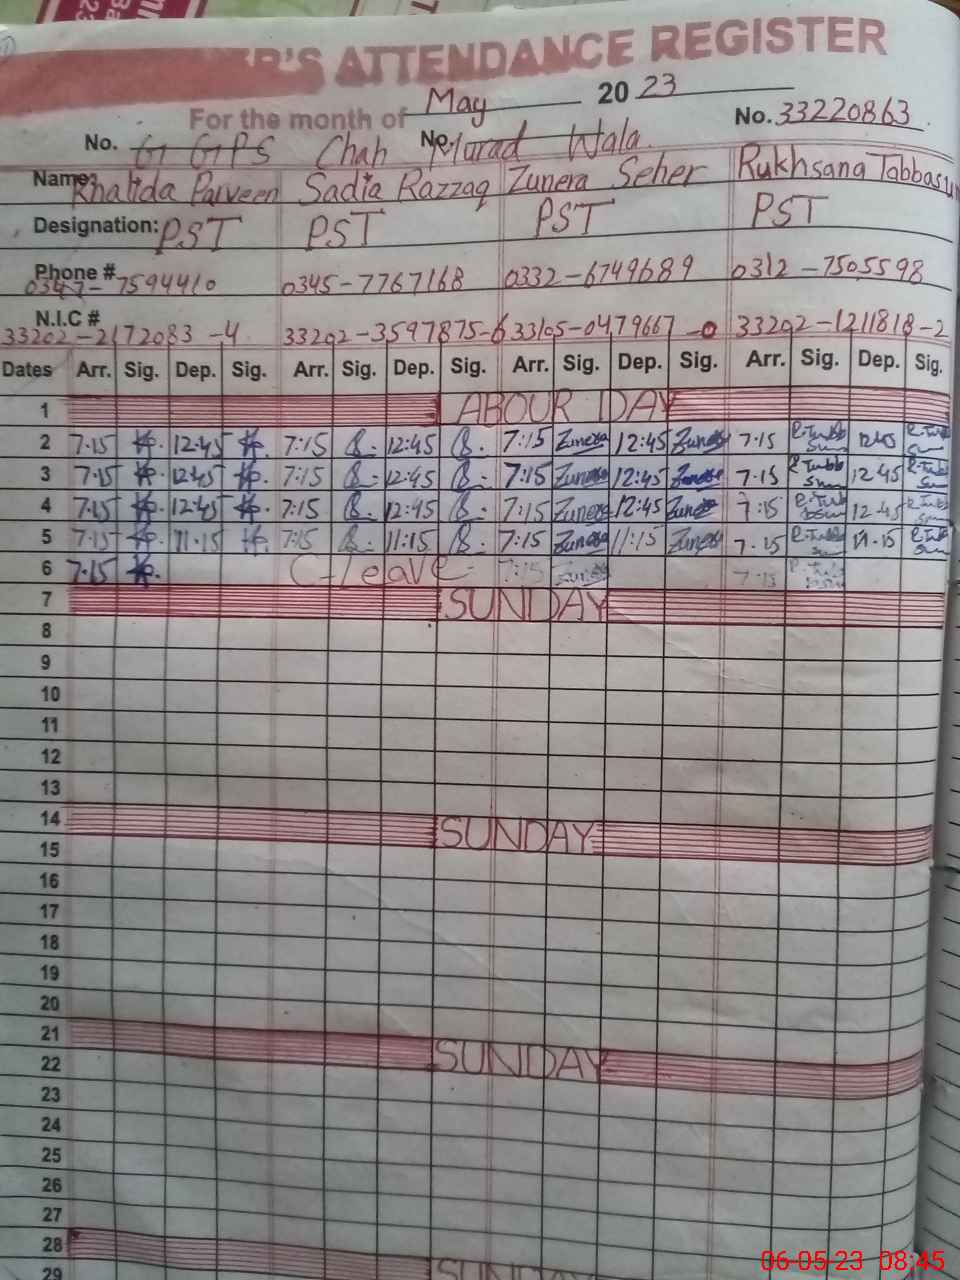 ER'S ATTENDANCE REGISTER
For the month of May 2023
No. G GPS Chah No. Murad Wala No. 33220863
Name: Khalida Parveen Sadia Razzaq Zunera Seher Rukhsana Tabbasum
Designation: PST PST PST PST
Phone # 0347-7594410 0345-7767168 0332-6749689 0312-7505598
N.I.C # 33202-2172083-4 33202-3597875-6 33105-0479667-0 33202-1211818-2
Dates Arr. Sig. Dep. Sig. Arr. Sig. Dep. Sig. Arr. Sig. Dep. Sig. Arr. Sig. Dep. Sig.
1 LABOUR DAY
2 7:15 12:45 7:15 12:45 7:15 Zunera 12:45 Zunera 7:15 R.Tabbsum 12:45 R.Tabbsum
3 7:15 12:45 7:15 12:45 7:15 Zunera 12:45 Zunera 7:15 R.Tabbsum 12.45 R.Tabbsum
4 7:15 12:45 7:15 12:45 7:15 Zunera 12:45 Zunera 7:15 R.Tabbsum 12.45 R.Tabbsum
5 7:15 11:15 7:15 11:15 7:15 Zunera 11:15 Zunera 7.15 R.Tabbsum 11.15 R.Tabbsum
6 7:15 C-leave 7:15 Zunera 7:15
7 SUNDAY
8
9
10
11
12
13
14 SUNDAY
15
16
17
18
19
20
21 SUNDAY
22
23
24
25
26
27
28 SUNDAY
29
06-05-23 08:45